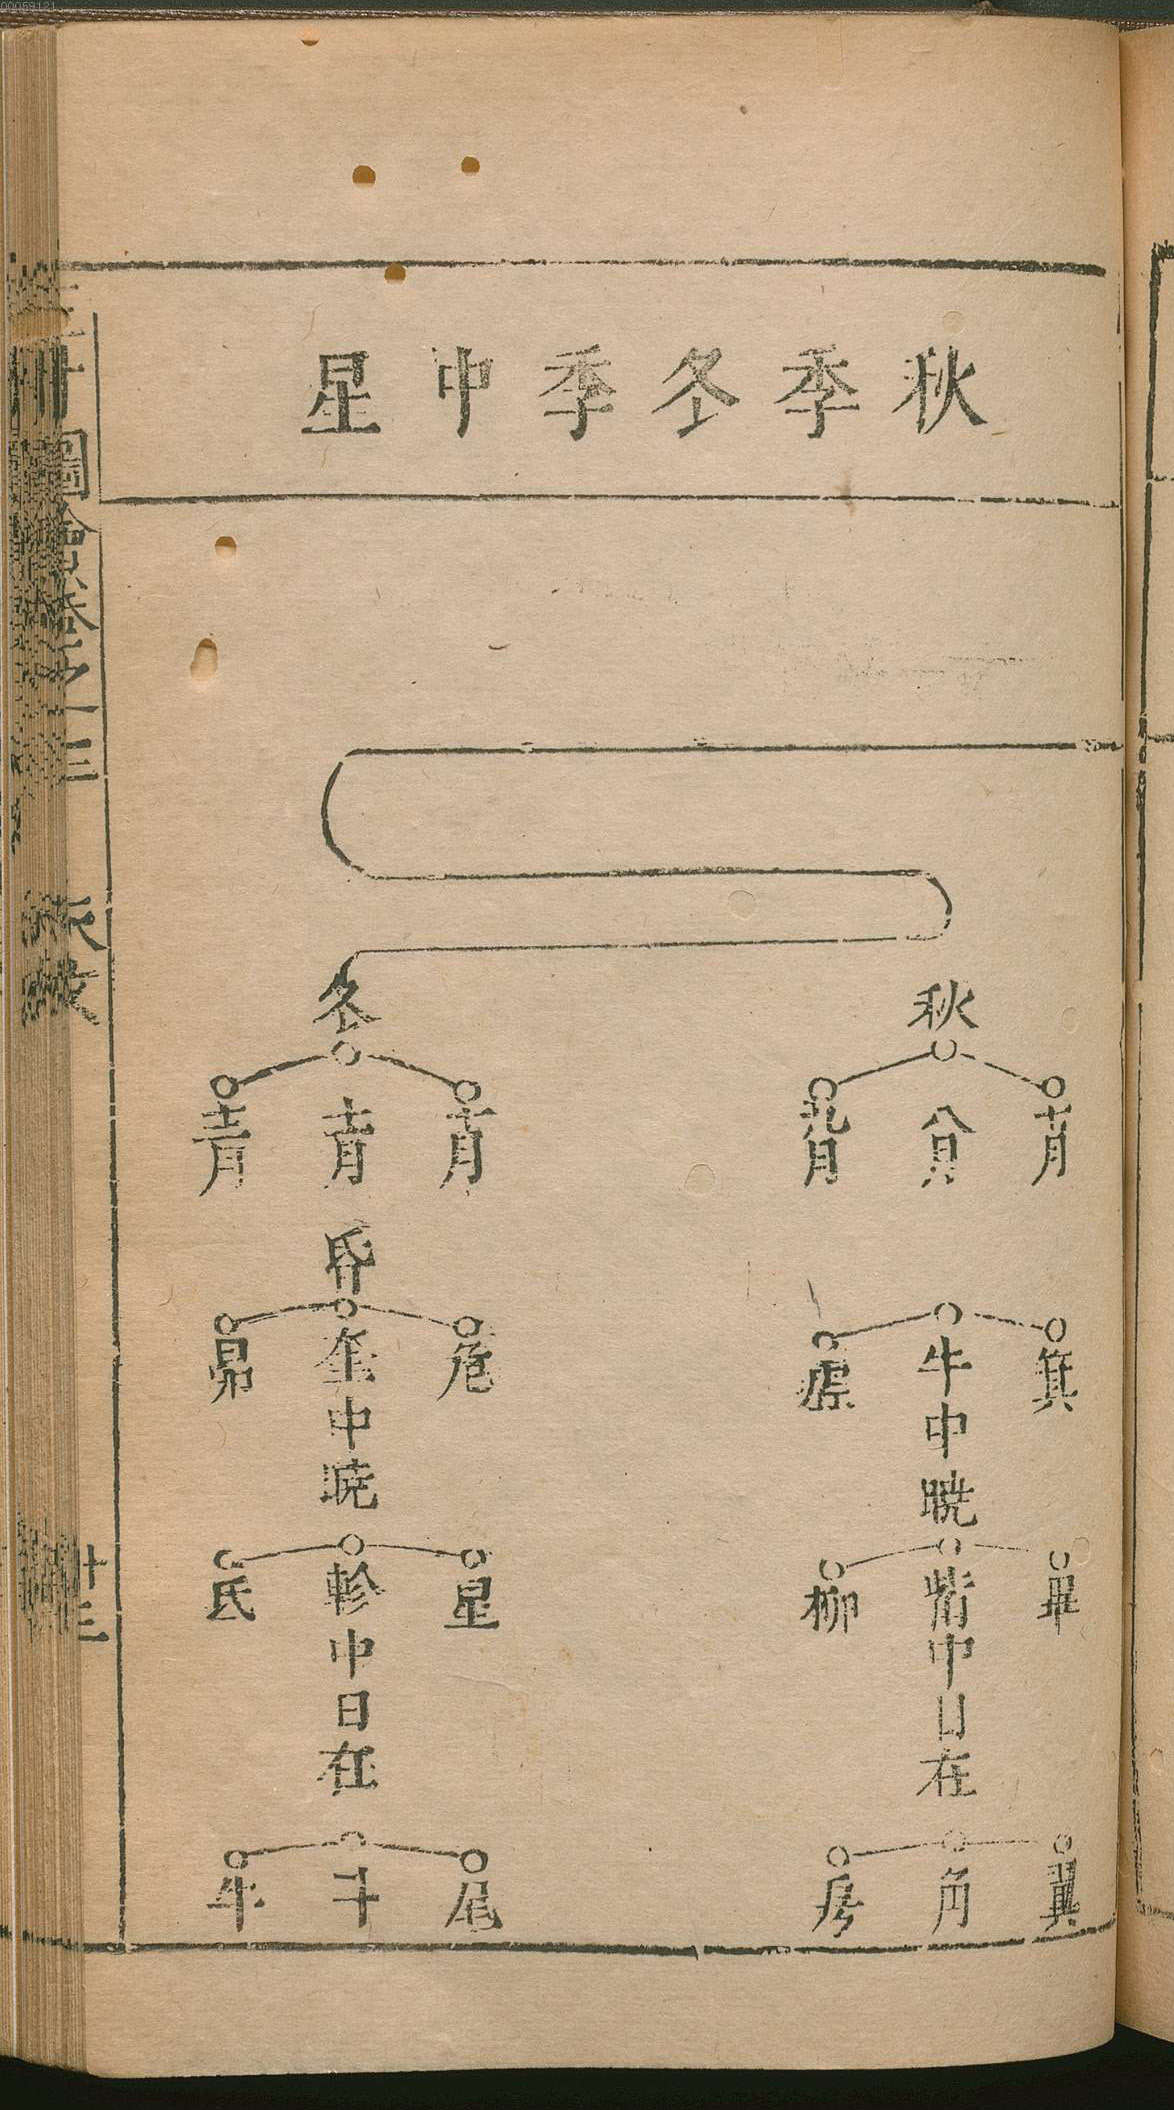 00059121
秋季冬季中星
秋
七月 八月 九月
箕 牛 虛
中
曉
畢 觜 柳
中
日
在
翼 角 房
冬
十月 十一月 十二月
昏
危 奎 昴
中
曉
星 軫 氐
中
日
在
尾 斗 牛
三才圖會卷之三
十三